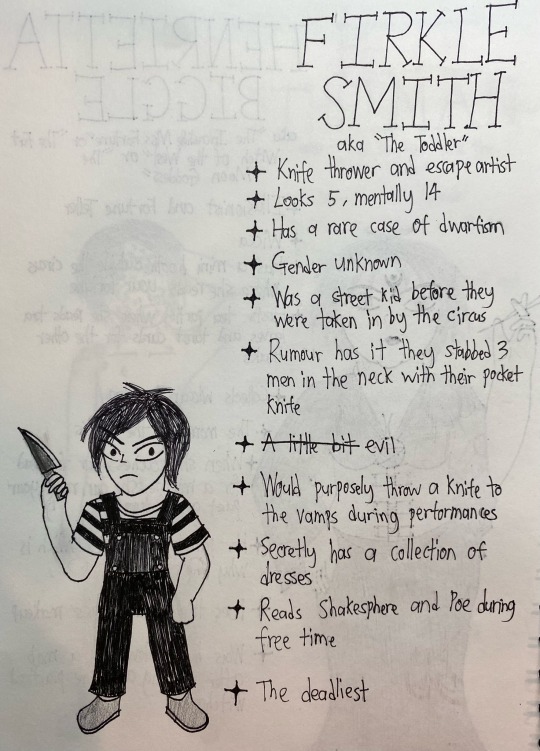 FIRKLE
SMITH
aka "The Toddler"
Knife thrower and escape artist
Looks 5, mentally 14
Has a rare case of dwarfism
Gender unknown
Was a street kid before they
were taken in by the circus
Rumour has it they stabbed 3
men in the neck with their pocket
knife
A little bit evil
Would purposely throw a knife to
the vamps during performances
Secretly has a collection of
dresses
Reads Shakesphere and Poe during
free time
The deadliest